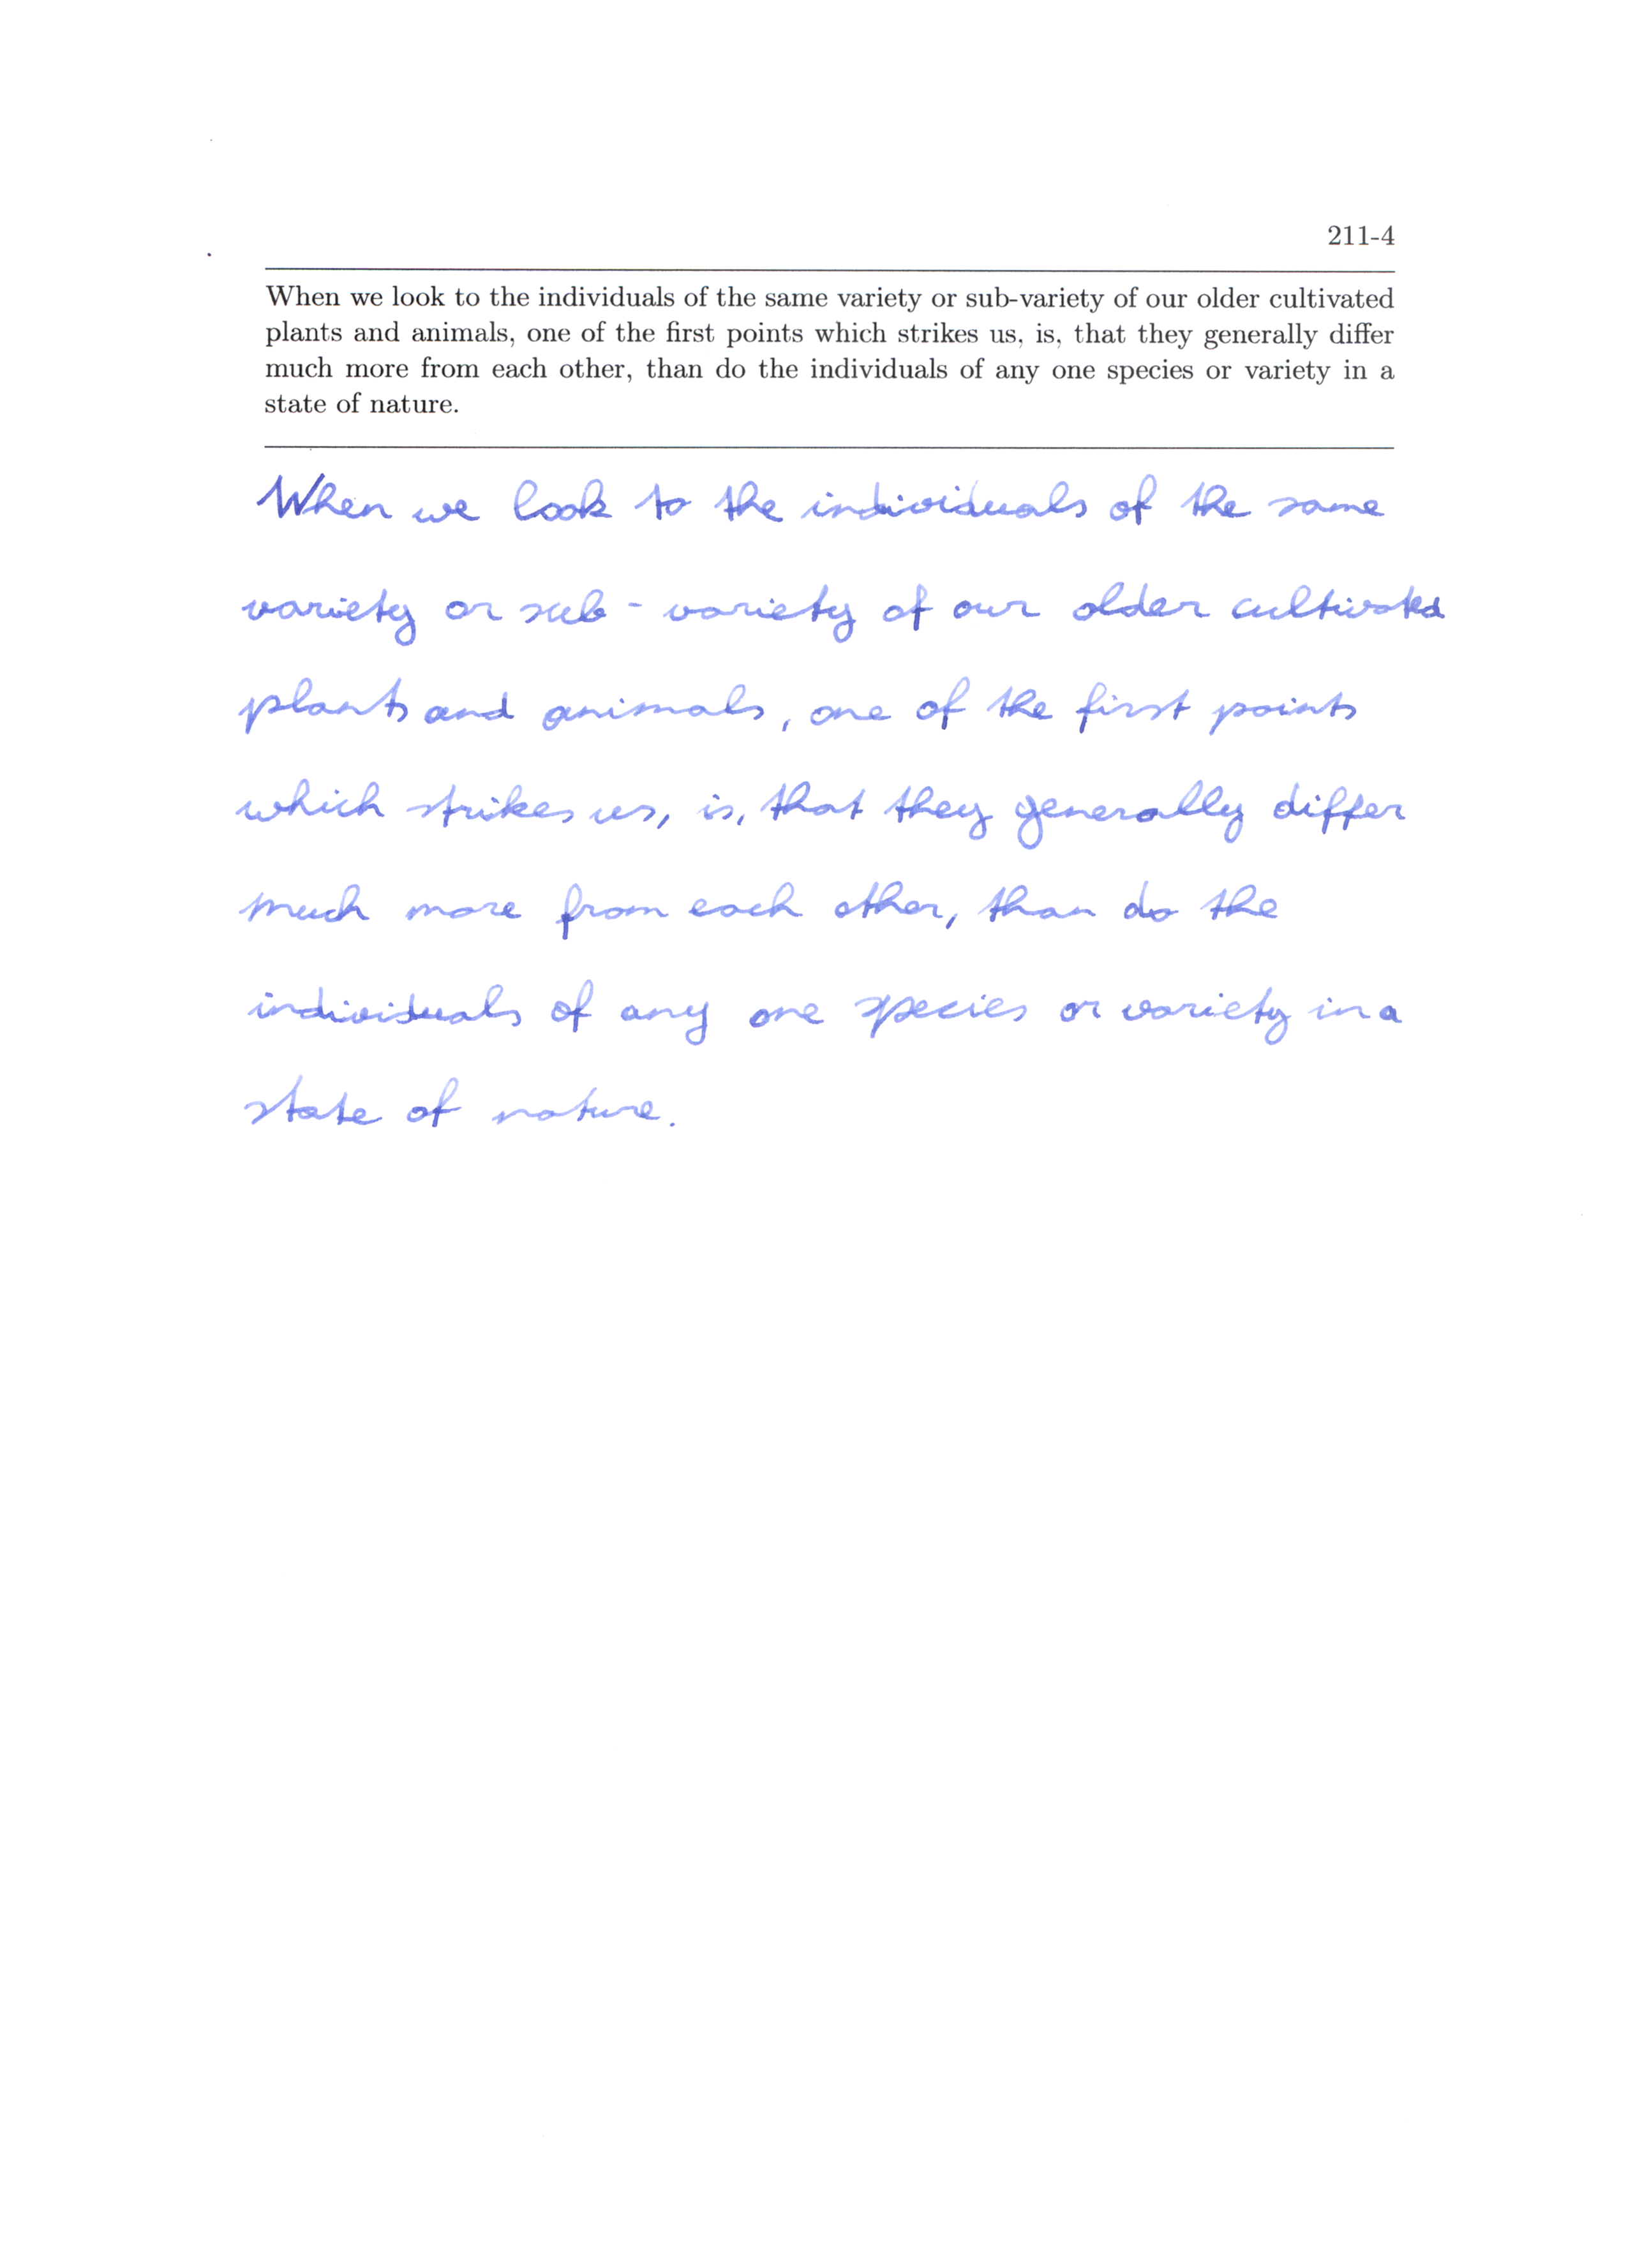 211-4
When we look to the individuals of the same variety or sub-variety of our older cultivated
plants and animals, one of the first points which strikes us, is, that they generally differ
much more from each other, than do the individuals of any one species or variety in a
state of nature.
When we look to the individuals of the same
variety or sub - variety of our older cultivated
plants and animals, one of the first points
which strikes us, is, that they generally differ
much more from each other, than do the
individuals of any one species or variety in a
state of nature.